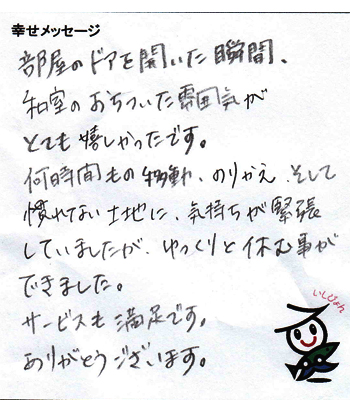 幸せメッセージ
部屋のドアを開いた瞬間、
和室のおちついた雰囲気が
とても嬉しかったです。
何時間もの移動、のりかえ、そして
慣れてない土地に、気持ちが緊張
していましたが、ゆっくりと休む事が
できました。
サービスも満足です。
ありがとうございます。
いしぴょん